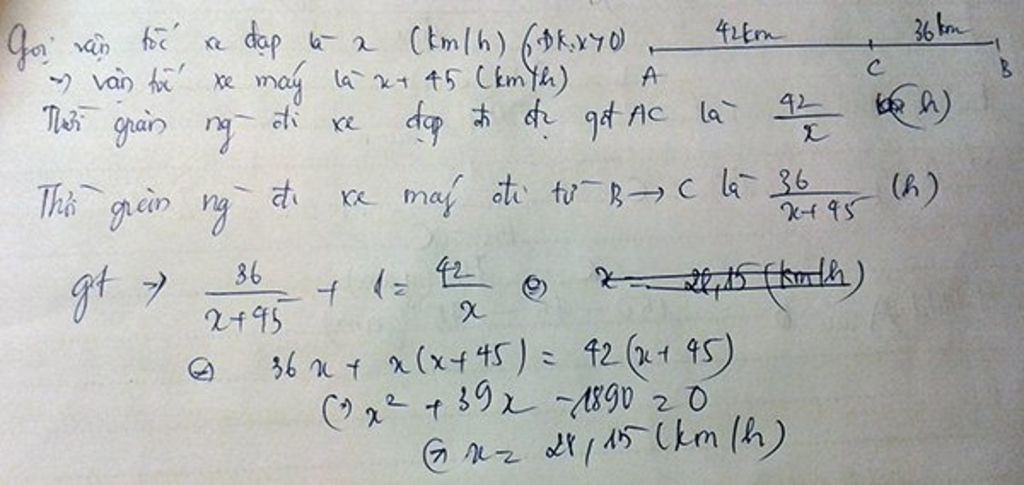 Gọi vận tốc xe đạp là x (km/h) (ĐK: x > 0)
42km 36km
→ vận tốc xe máy là x + 45 (km/h)
A C B
Thời gian ng đi xe đạp đi đc qđ AC là 42/x (h)
Thời gian ng đi xe máy đi từ B → C là 36/(x+45) (h)
gt → 36/(x+45) + 1 = 42/x ⇔
⇔ 36x + x(x+45) = 42(x+45)
⇔ x² + 39x - 1890 = 0
⇔ x = 28,15 (km/h)